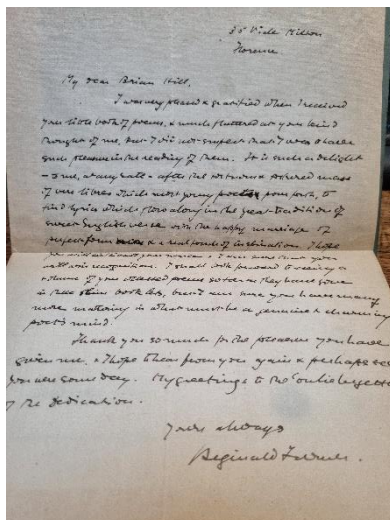 35 Viale Milton
Florence
My dear Brian Hill,
I was very pleased & gratified when I received
your little book of poems, & much flattered at your kind
thought of me, but I did not suspect that I was to have
such pleasure in the reading of them. It is such a delight
- to me, at any rate - after the & mass
of vers libres which most young poets pour forth, to
find lyrics which flow along in the great tradition of
sweet English verse with the happy marriage of
perfect form & a real fount of inspiration. I hope
your
will win recognition. I shall look forward to seeing a
volume of your poems as soon as they have gone
in these books, but I am sure you have many
more maturing in what must be a genuine & charming
poet's mind.
Thank you so much for the pleasure you have
given me, & I hope to hear from you again & perhaps see
you here some day. My greetings to the "onlie begetter"
of the dedication.
Yours always
Reginald Turner.